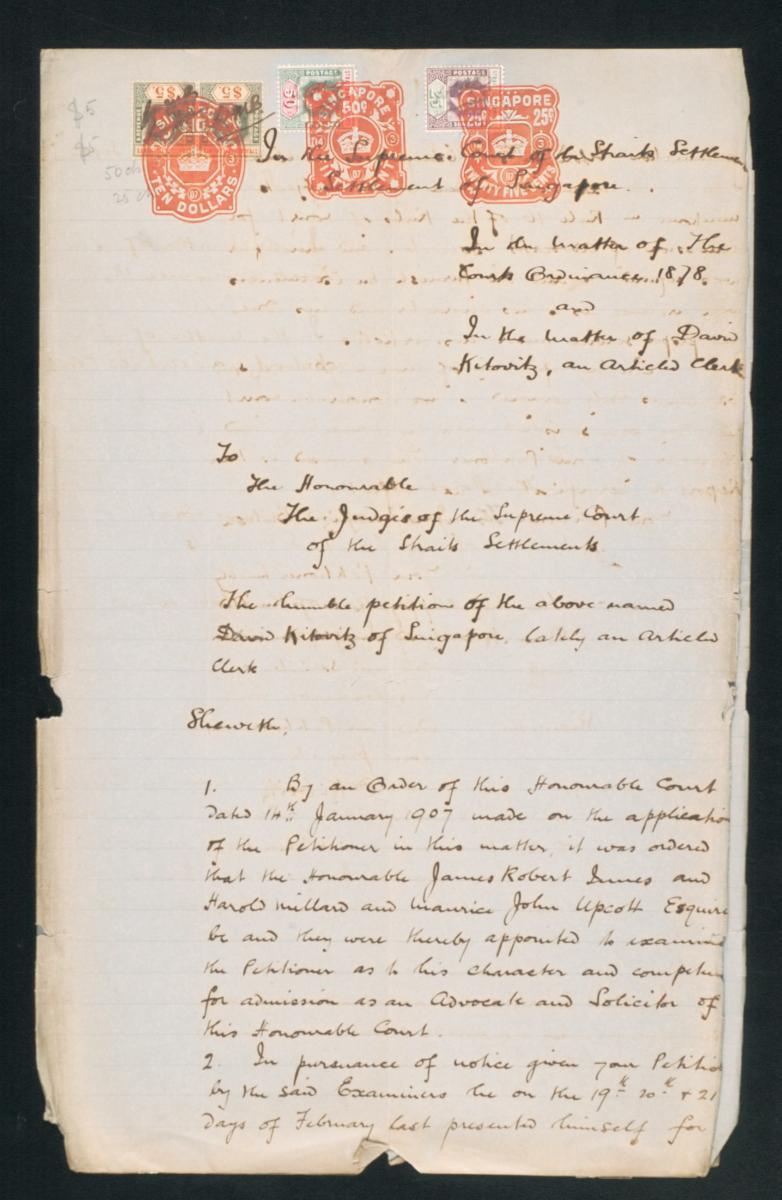 $5 $5
POSTAGE
POSTAGE
$5
50 cts
25 cts
SINGAPORE
TEN DOLLARS
SINGAPORE
50¢
SINGAPORE
25¢
TWENTY FIVE CENTS
In the Supreme Court of the Straits Settlements
Settlement of Singapore.
In the matter of The
Courts Ordinance 1878.
and
In the matter of David
Kitovitz, an Articled Clerk
To
The Honourable
The Judges of the Supreme Court
of the Straits Settlements
The humble petition of the above named
David Kitovitz of Singapore, lately an Articled
Clerk
Sheweth,
1. By an Order of this Honourable Court
dated 14th January 1907 made on the application
of the Petitioner in this matter, it was ordered
that the Honourable James Robert Innes and
Harold Millard and Maurice John Upcott Esquire
be and they were thereby appointed to examine
the Petitioner as to his character and competen
for admission as an Advocate and Solicitor of
this Honourable Court.
2. In pursuance of notice given your Petitio
by the said Examiners he on the 19th 20th & 21
days of February last presented himself for